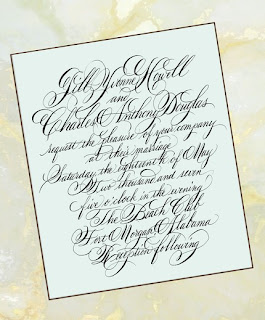 Jill Yvonne Howell
and
Charles Anthony Douglas
request the pleasure of your company
at their marriage
Saturday, the eighteenth of May
Two thousand and seven
five o'clock in the evening
The Beach Club
Fort Morgan, Alabama
Reception following